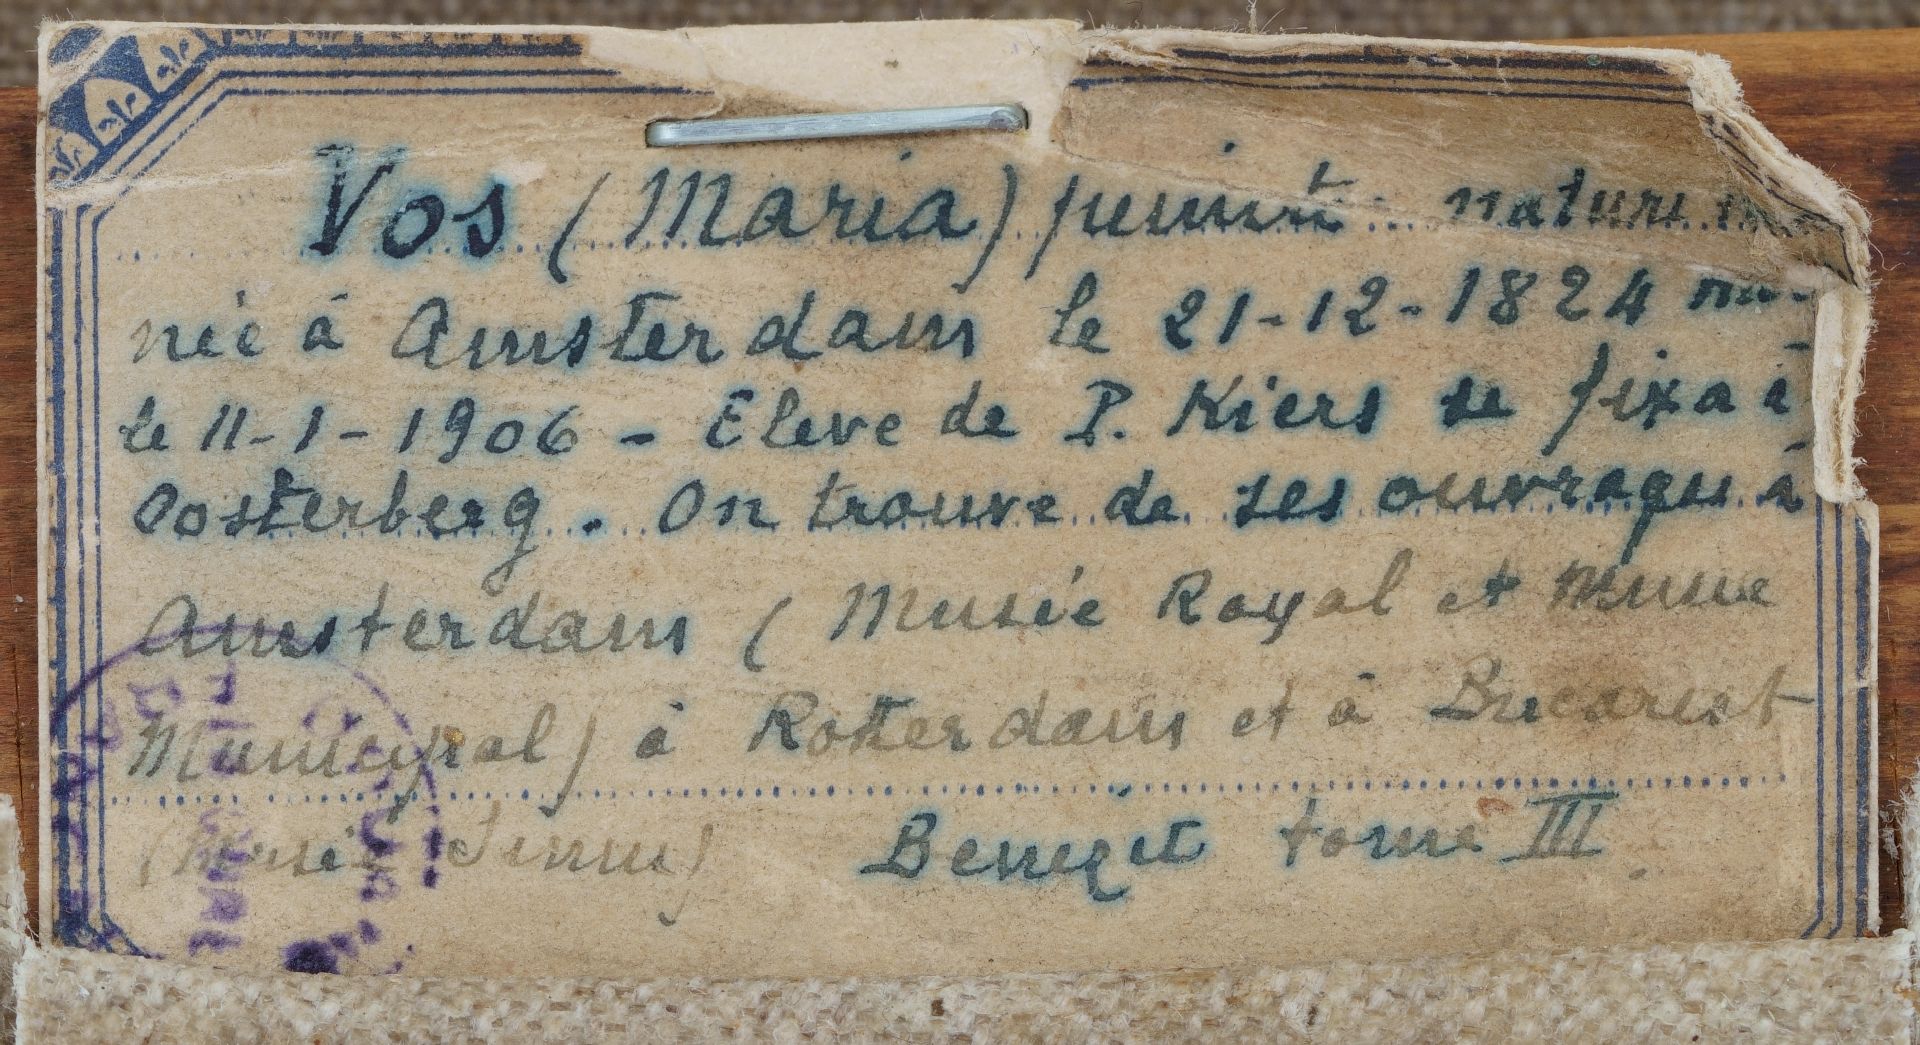 Vos (Maria) peint natures
née à Amsterdam le 21-12-1824
le 11-1-1906 - Eleve de P. Kiers se fixa à
Oosterberg. On trouve de ses ouvrages à
Amsterdam (Musée Royal et Musée
Municipal) à Rotterdam et à Bucarest
(Musée Simu) Benezit tome III